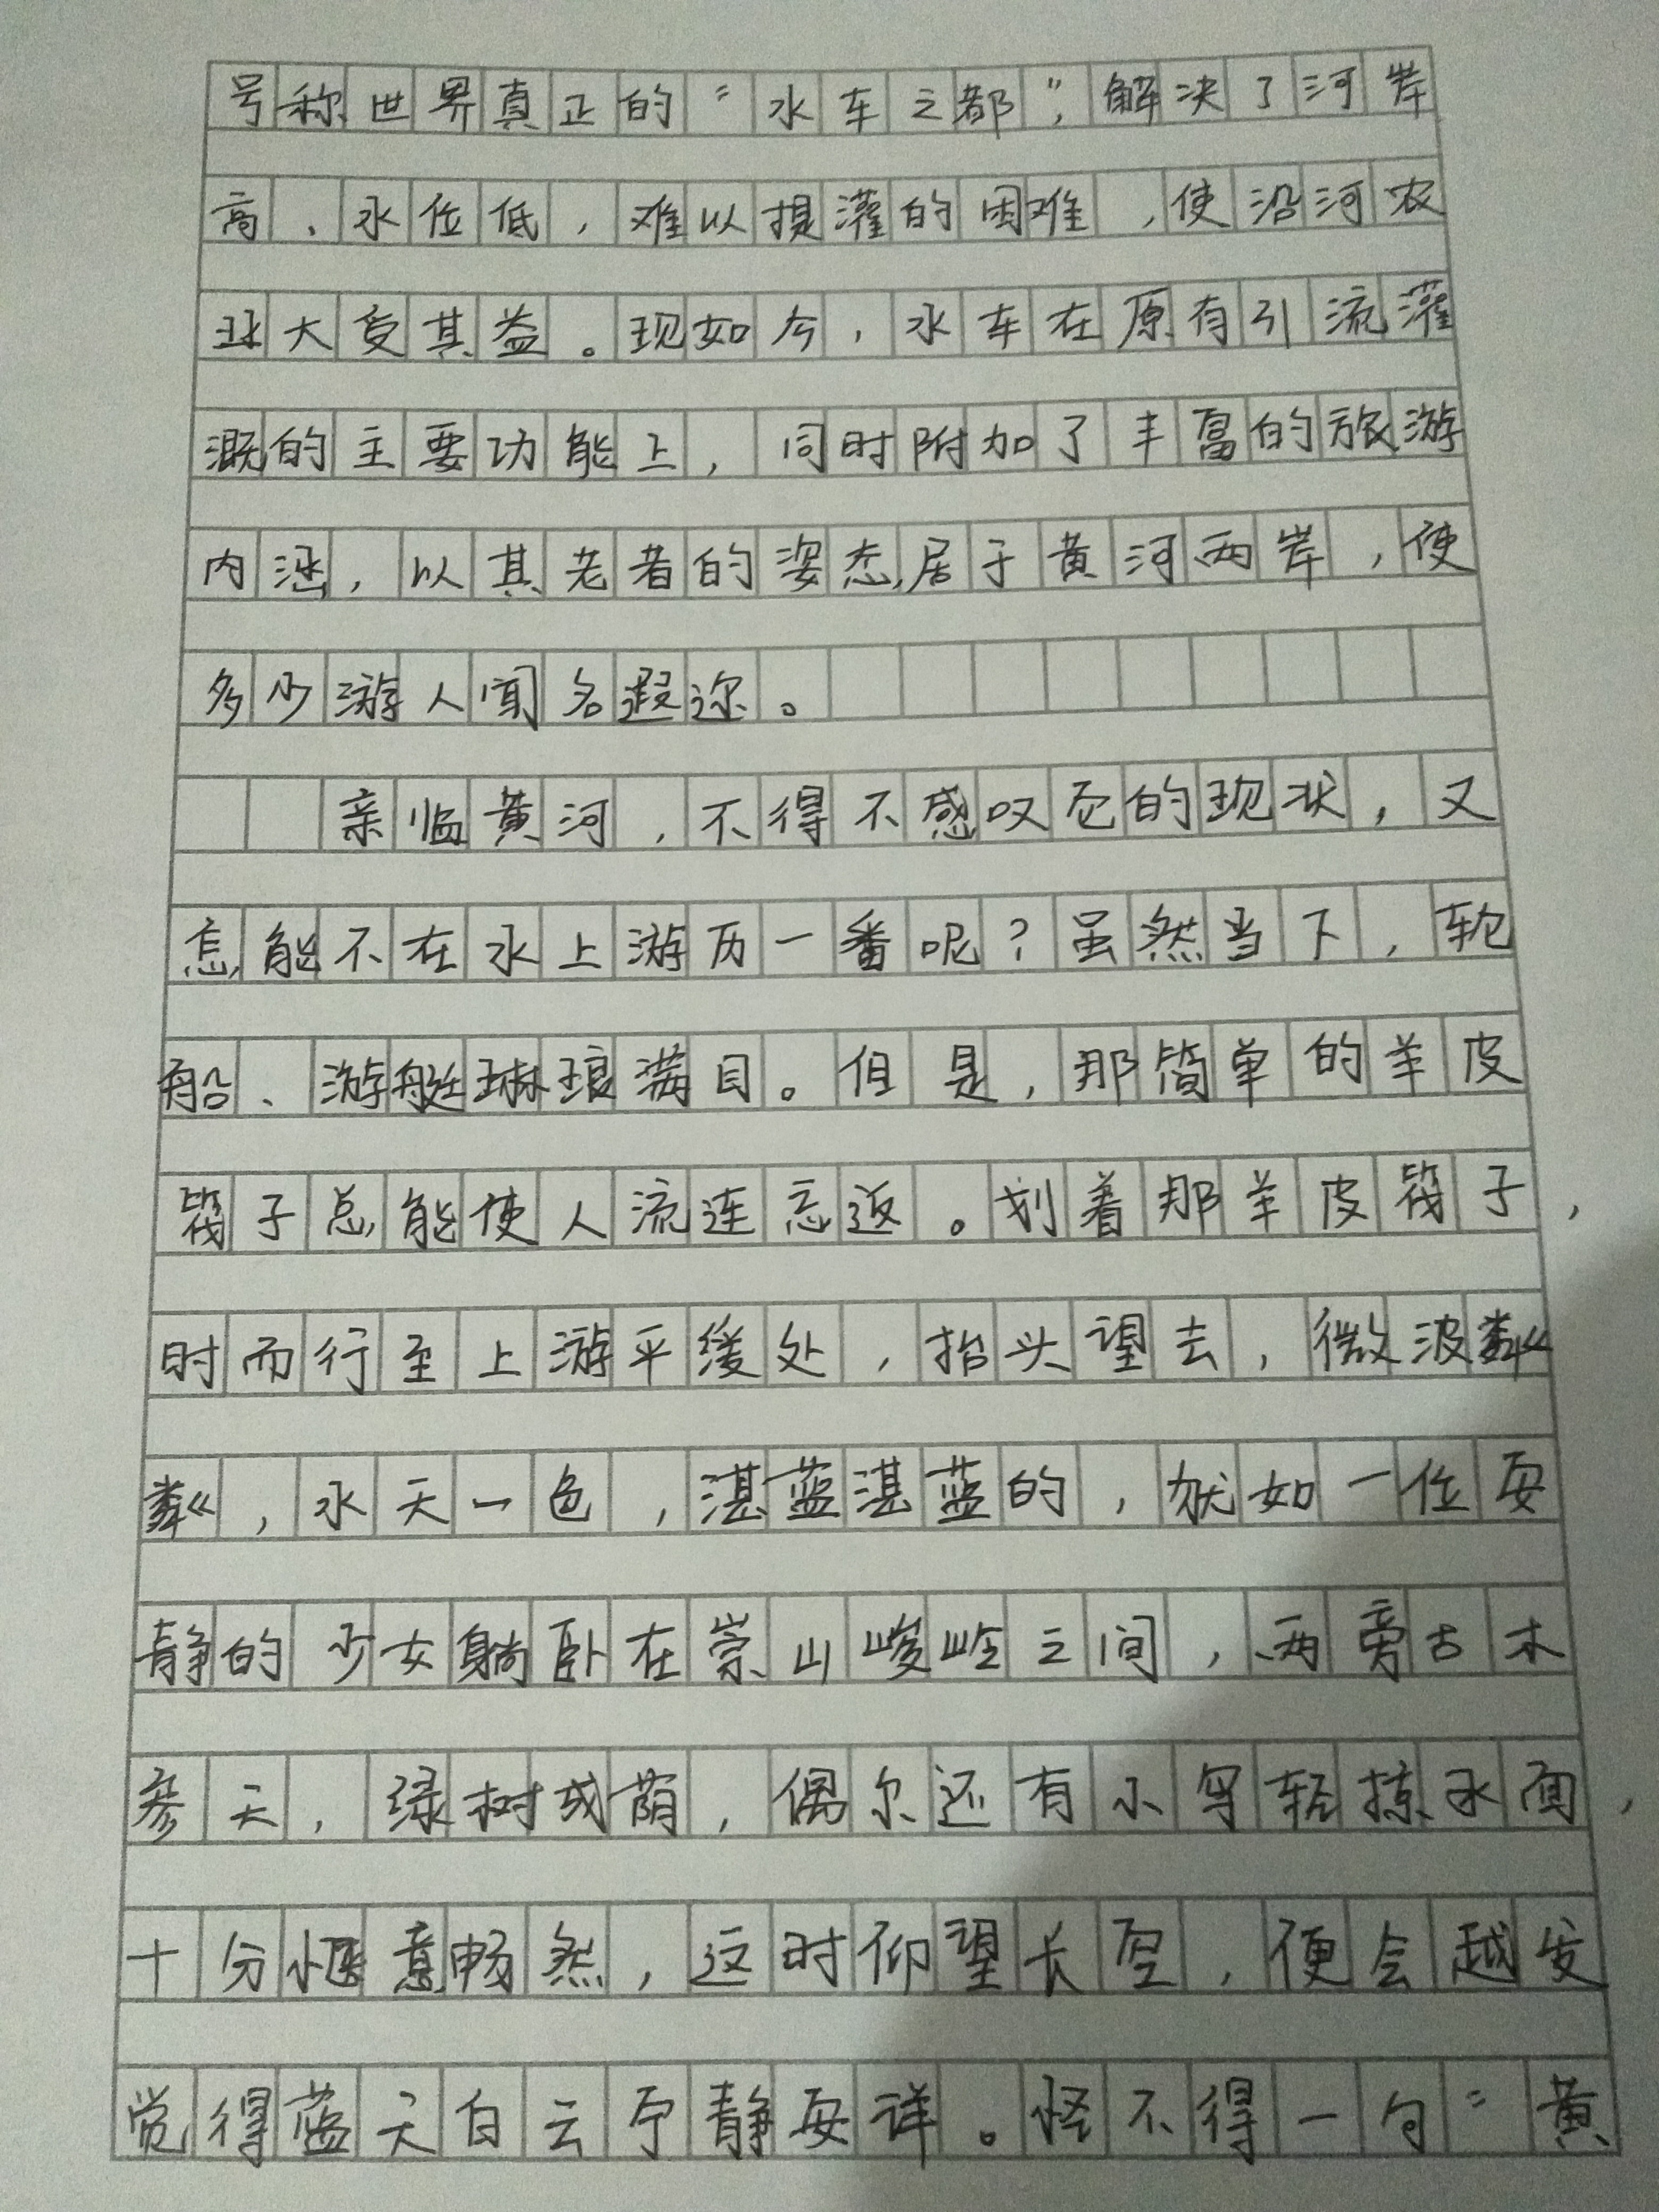 号称世界真正的“水车之都”，解决了河岸
高、水位低，难以提灌的困难，使沿河农
球大受其益。现如今，水车在原有引流灌
溉的主要功能上，同时附加了丰富的旅游
内涵，以其老者的姿态，居于黄河两岸，使
多少游人闻名遐迩。
亲临黄河，不得不感叹它的现状，又
怎能不在水上游历一番呢？虽然当下，轮
船、游艇琳琅满目。但是，那简单的羊皮
筏子总能使人流连忘返。划着那羊皮筏子，
时而行至上游平缓处，抬头望去，微波粼
粼，水天一色，湛蓝湛蓝的，就如一位安
静的少女躺卧在崇山峻岭之间，两旁古木
参天，绿树成荫，偶尔还有小鸟轻掠水面，
十分惬意畅然，这时仰望长空，便会越发
觉得蓝天白云宁静安详。怪不得一句“黄